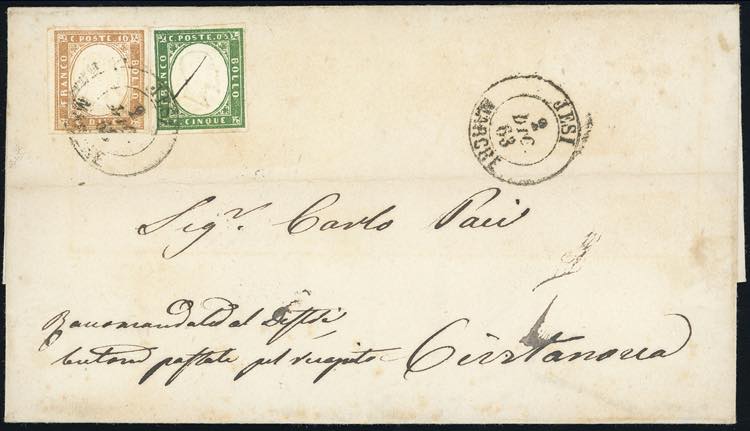 C. POSTE. 10
FRANCO
BOLLO
C. POSTE. 05
FRANCO
BOLLO
CINQUE
JESI
2
DIC
63
MARCHE
Sigr. Carlo Paci
Raccomandata al
postale pel recapito Civitanova